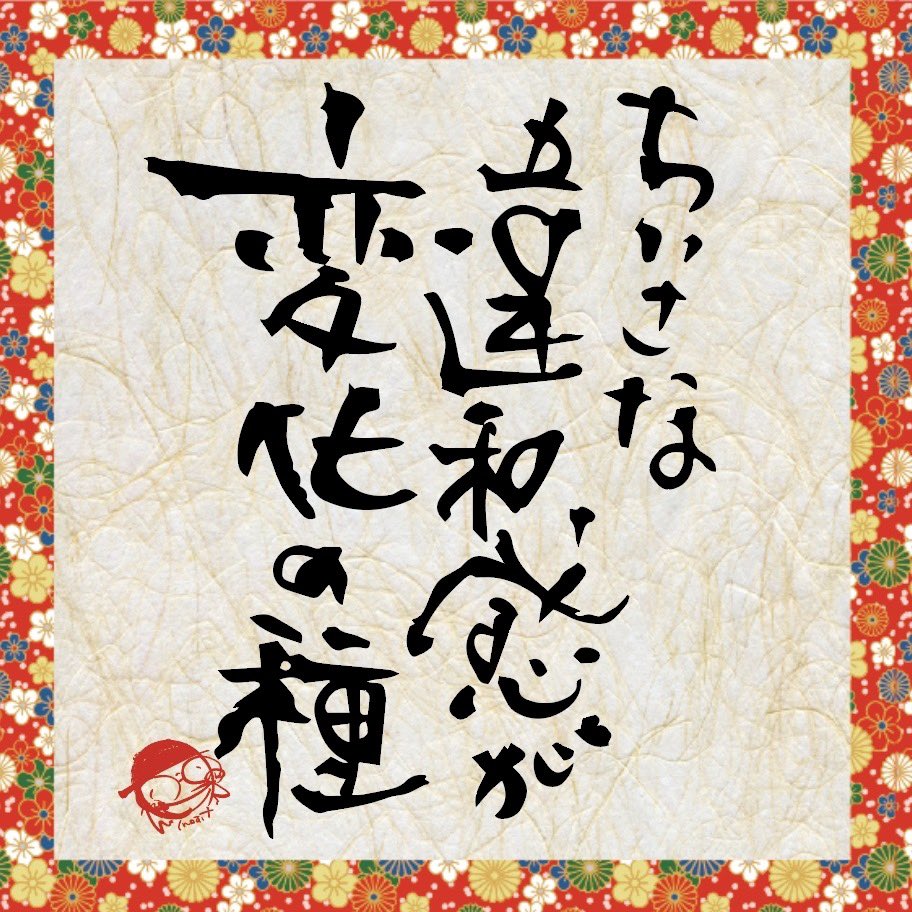 ちいさな
違和感が
変化の種